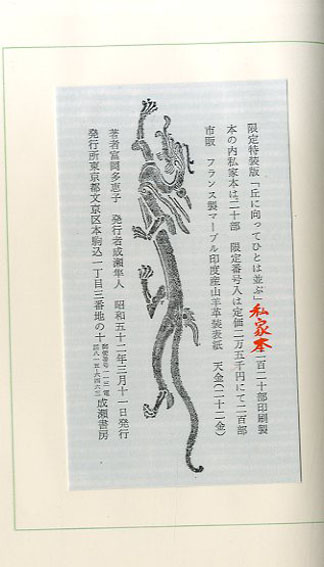 限定特装版「丘に向ってひとは並ぶ」一百二十部印刷製
私家本
本の内私家本は二十部 限定番号入は定価二万五千円にて一百部
市販 フランス製マーブル印度産山羊革装表紙 天金(二十二金)
著者富岡多恵子 発行者成瀬隼人 昭和五十二年三月十一日発行
発行所東京都文京区本駒込一丁目三番地の十
成瀬書房